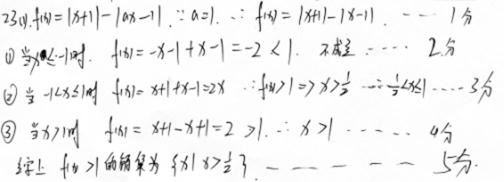 23(1). f(x)=|x+1|-|ax-1|. ∵ a=1. ∴ f(x)=|x+1|-|x-1|. ---- 1分
① 当x≤-1时. f(x)=-x-1+x-1=-2<1. 不成立 ---- 2分
② 当-1<x≤1时 f(x)=x+1+x-1=2x ∴f(x)>1=>x>1/2 ∴1/2<x≤1 ---- 3分
③ 当x>1时 f(x)=x+1-x+1=2>1. ∴ x>1 ---- 4分
综上 f(x)>1的解集为{x|x>1/2}. ---- 5分.